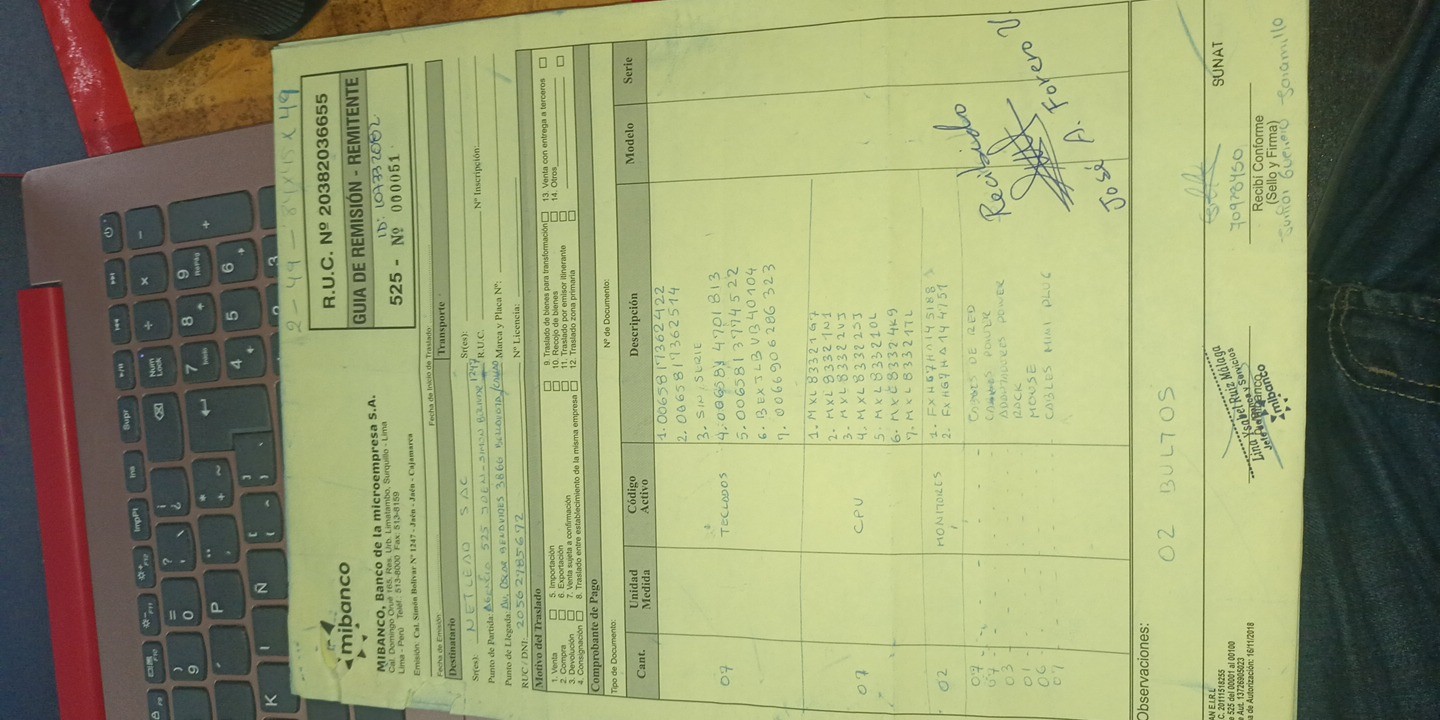 2 - 49 - 84 x 45 x 49
mibanco
MIBANCO, Banco de la microempresa S.A.
Cal. Domingo Orue 165, Res. Urb. Limatambo, Surquillo - Lima
Lima - Perú Telef: 513-8000 Fax: 513-8159
Emisión: Cal. Simón Bolívar N° 1247 - Jaén - Jaén - Cajamarca
R.U.C. Nº 20382036655
GUIA DE REMISIÓN - REMITENTE
ID: 10773 20102
525 - Nº 000051
Fecha de Emisión: Fecha de Inicio de Traslado:
Destinatario Transporte
Sr(es): NETLEAD SAC Sr(es):
Punto de Partida: Agencia 525 JAEN - SIMON BOLIVAR 1247 R.U.C. Nº Inscripción:
Punto de Llegada: Av. Oscar Benavides 3866 Bellavista/Callao Marca y Placa Nº:
RUC / DNI: 20562785692 Nº Licencia:
Motivo del Traslado
1. Venta 5. Importación 9. Traslado de bienes para transformación 13. Venta con entrega a terceros
2. Compra 6. Exportación 10. Recojo de bienes 14. Otros
3. Devolución 7. Venta sujeta a confirmación 11. Traslado por emisor itinerante
4. Consignación 8. Traslado entre establecimiento de la misma empresa 12. Traslado zona primaria
Comprobante de Pago
Tipo de Documento: Nº de Documento:
Cant. Unidad Medida Código Activo Descripción Modelo Serie
1. 0065817362422
2. 0065817362514
3. SIN/SERIE
07 TECLADOS 4. 006581 4701813
5. 006581 3774522
6. BEXJLBVB340104
7. 0066906286323
1. MXL8332167
2. MXL83321N1
3. MXL83322V3
07 CPU 4. MXL83322J3
5. MXL833210L
6. MXL83324K9
7. MXL83321TL
02 MONITORES 1. FXH67HA145188
2. FXH67HA144751
07 CABLES DE RED
07 CABLES POWER
03 ADAPTADORES POWER
01 RACK
06 MOUSE
07 CABLES MINI PLUG
Recibido
José A. Forero V.
Observaciones: 02 BULTOS
Lina Ysabel Ruiz Málaga
mibanco
70978450
Recibí Conforme
(Sello y Firma)
SUNAT
AN E.I.R.L
C. 20111518255
e 525 del 00001 al 00100
e Aut. 13726905023
a de Autorización: 16/11/2018